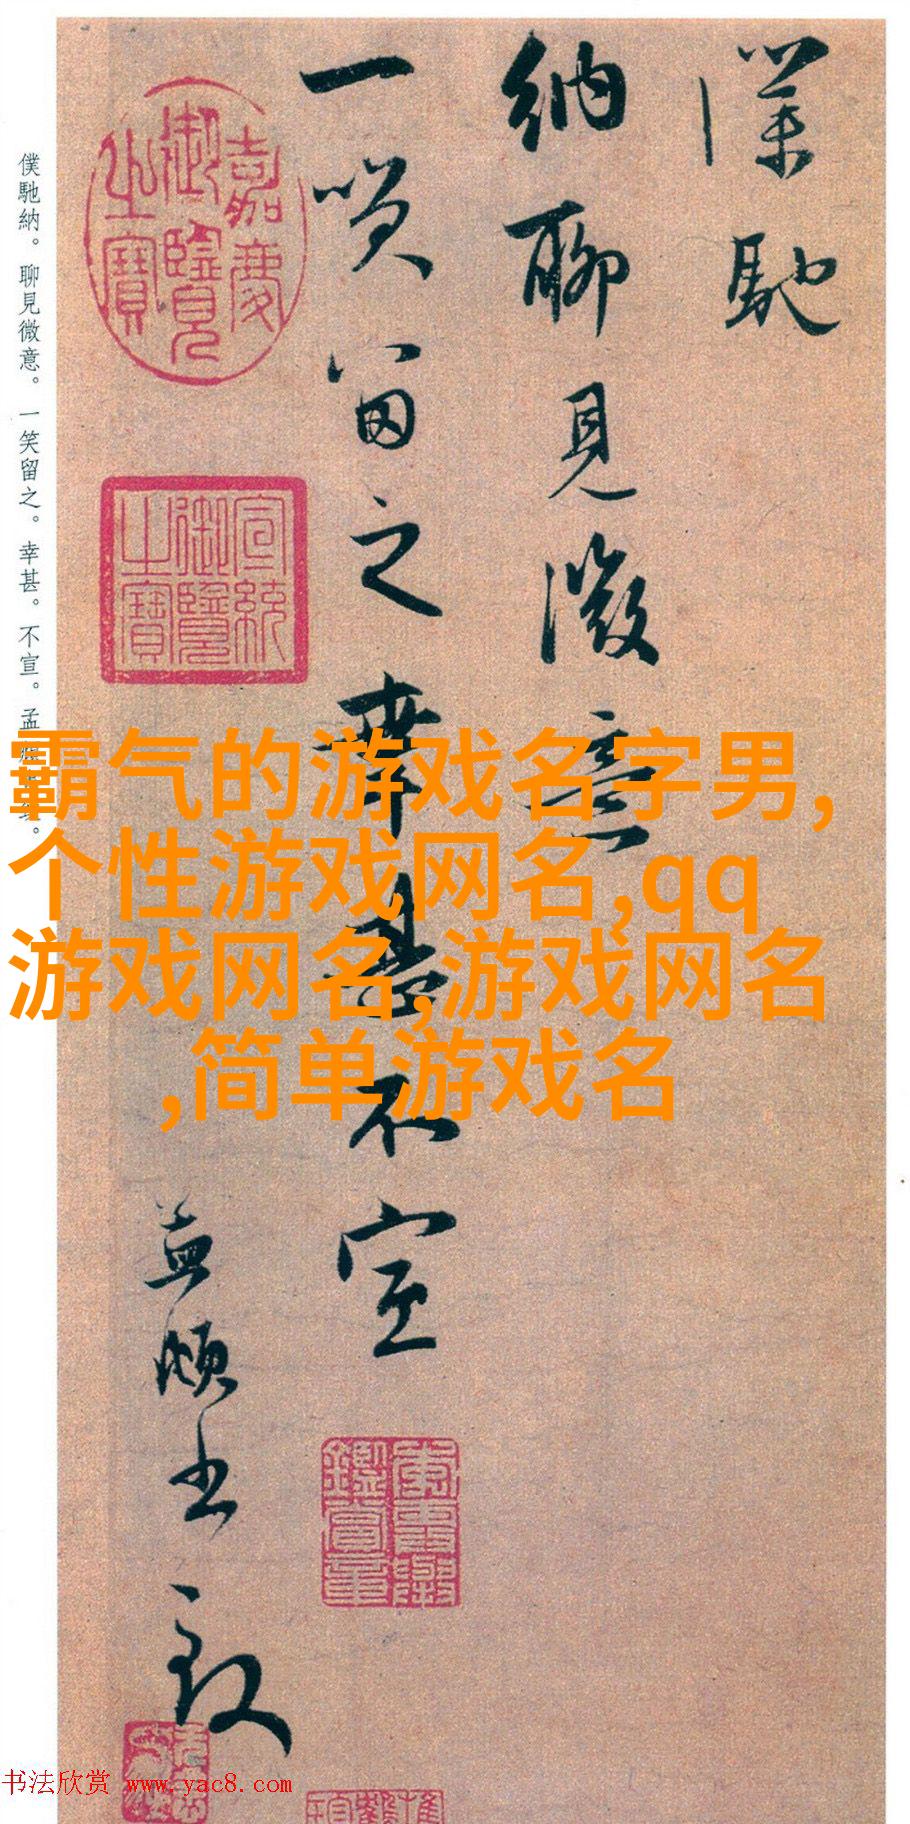 僕馳
納聊見微意
一笑留之幸甚不宣
孟頫
嘉慶御覽之寶
宣統御覽之寶
僕馳納。聊見微意。一笑留之。幸甚。不宣。孟
霸气的游戏名字男,
个性游戏网名,qq
游戏网名,游戏网名
,简单游戏名
书法欣赏 www.yac8.com